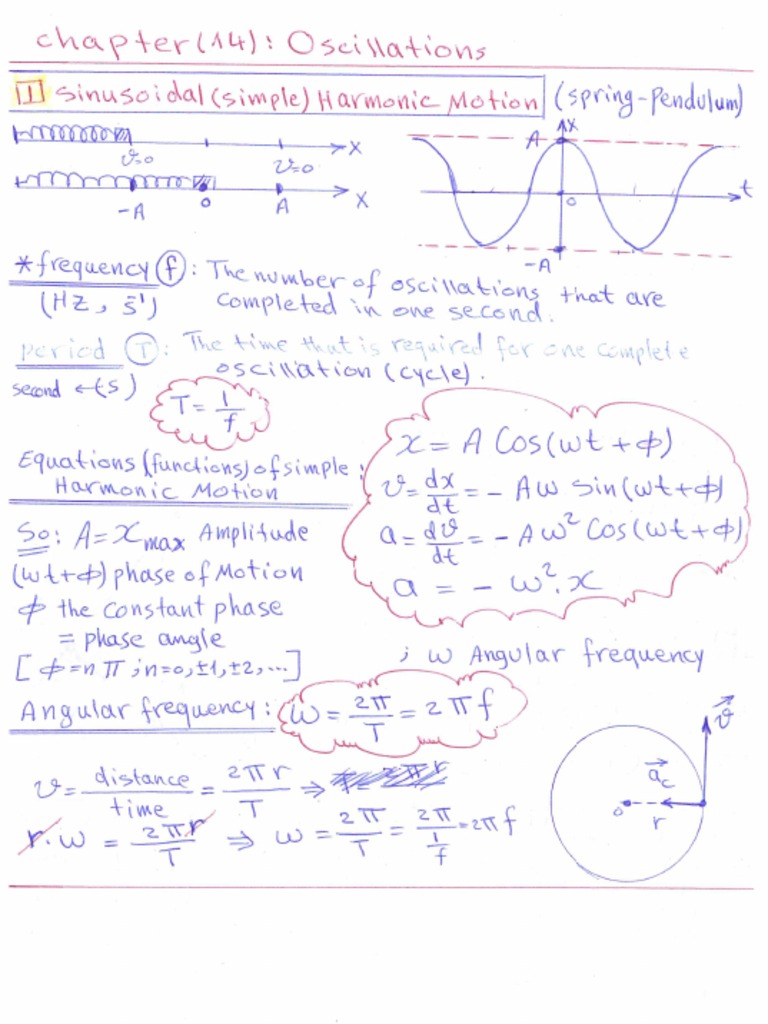 chapter (14): Oscillations
1 Sinusoidal (simple) Harmonic Motion (spring-pendulum)
x
v=0 v=0
-A 0 A x
A x
0 t
-A
*frequency (f): The number of oscillations that are
(Hz, s⁻¹) completed in one second.
Period (T): The time that is required for one complete
oscillation (cycle).
second ← (s)
T = 1/f
Equations (functions) of simple :
Harmonic Motion
x = A Cos(ωt + φ)
v = dx/dt = - Aω Sin(ωt + φ)
a = dv/dt = - Aω² Cos(ωt + φ)
a = - ω². x
So: A = xmax Amplitude
(ωt+φ) phase of Motion
φ the constant phase
= phase angle
[φ = nπ ; n=0, ±1, ±2, ...] ; ω Angular frequency
Angular frequency: ω = 2π/T = 2πf
v = distance/time = 2πr/T ⇒
r. ω = 2πr/T ⇒ ω = 2π/T = 2π/(1/f) = 2πf
v
ac
0 r